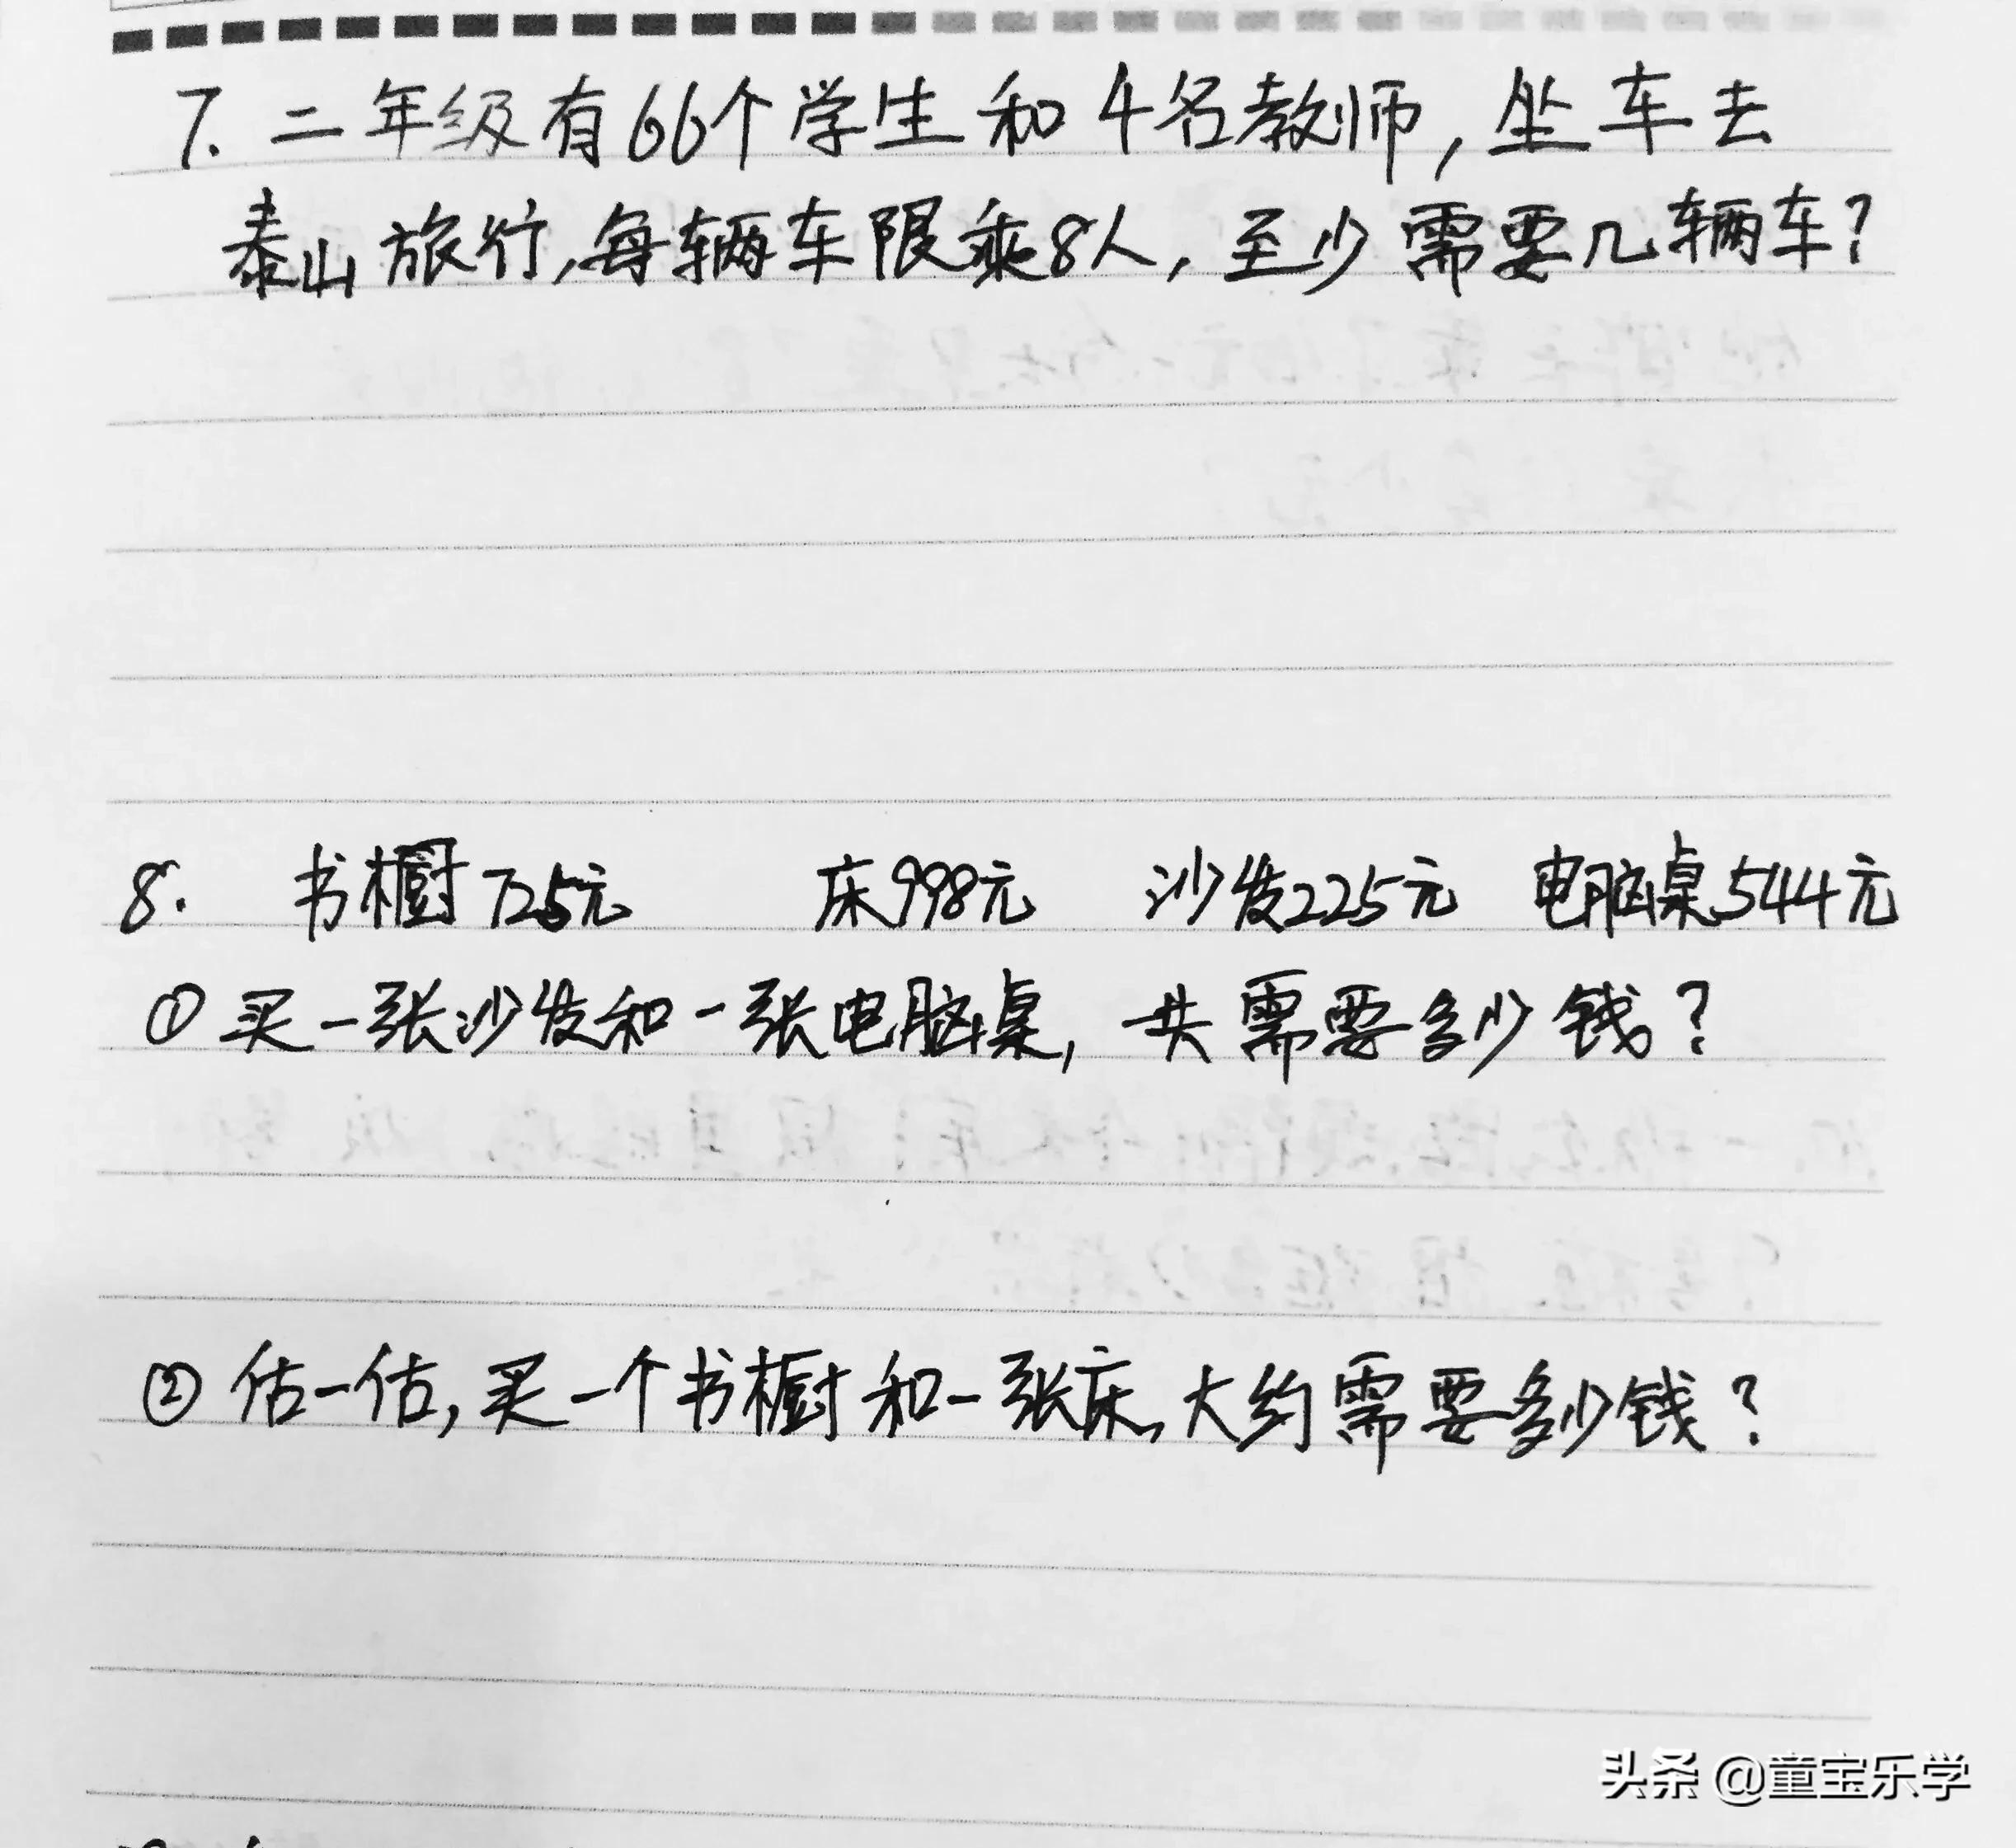 7. 二年级有66个学生和4名教师,坐车去
泰山旅行,每辆车限乘8人,至少需要几辆车?
8. 书橱725元 床998元 沙发225元 电脑桌544元
①买一张沙发和一张电脑桌,一共需要多少钱?
②估一估,买一个书橱和一张床,大约需要多少钱?
头条 @童宝乐学